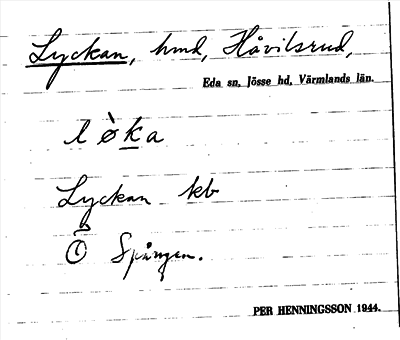 Lyckan, hmd, Håvilsrud,
Eda sn, Jösse hd, Värmlands län.
l ø̀ k a
Lyckan kb
Ô Spången.
PER HENNINGSSON 1944.